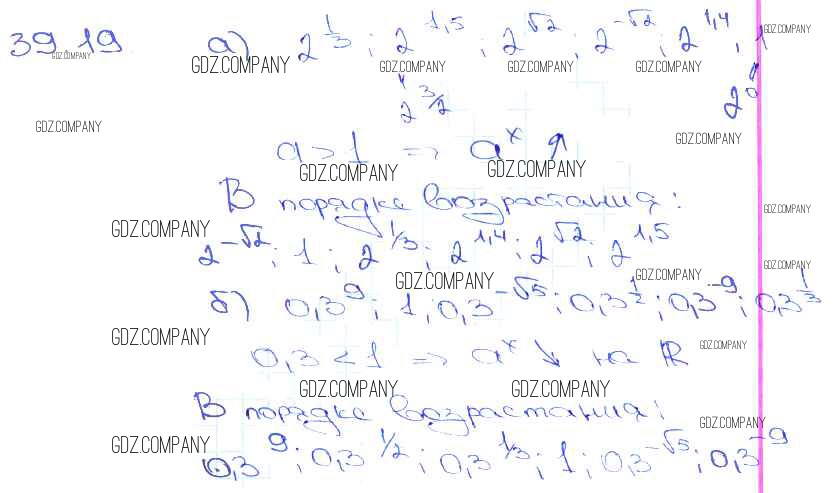 39.19. а) 2^{1/3}; 2^{1,5}; 2^{√2}; 2^{-√2}; 2^{1,4}; 1
GDZ.COMPANY GDZ.COMPANY GDZ.COMPANY GDZ.COMPANY GDZ.COMPANY GDZ.COMPANY
2^{3/2} 2^0
GDZ.COMPANY GDZ.COMPANY
a > 1 => a^x ↑
GDZ.COMPANY GDZ.COMPANY
В порядке возрастания:
GDZ.COMPANY GDZ.COMPANY
2^{-√2}; 1; 2^{1/3}; 2^{1,4}; 2^{√2}; 2^{1,5}
GDZ.COMPANY GDZ.COMPANY GDZ.COMPANY
б) 0,3^9; 1; 0,3^{-√5}; 0,3^{1/2}; 0,3^{-9}; 0,3^{1/3}
GDZ.COMPANY GDZ.COMPANY
0,3 < 1 => a^x ↓ на R
GDZ.COMPANY GDZ.COMPANY
В порядке возрастания:
GDZ.COMPANY GDZ.COMPANY
0,3^9; 0,3^{1/2}; 0,3^{1/3}; 1; 0,3^{-√5}; 0,3^{-9}